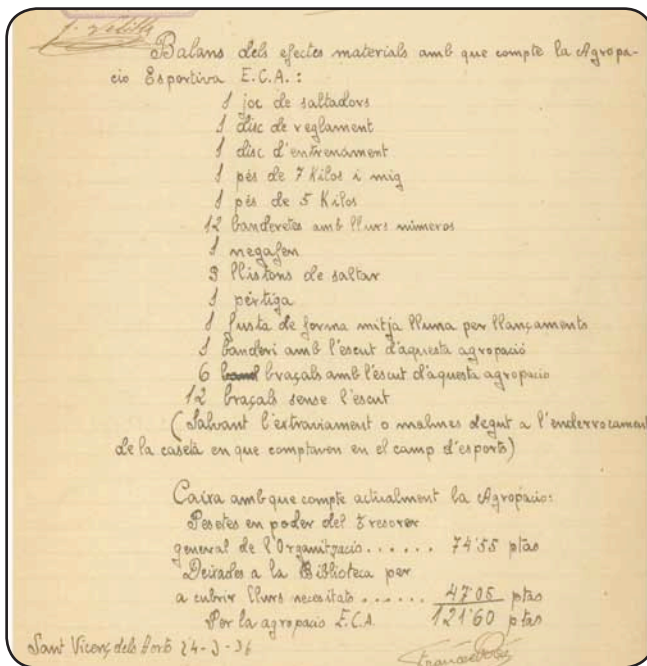 J. Velilla
Balans dels efectes materials amb que compte la Agropa-
ció Esportiva E.C.A.:
1 joc de saltadors
1 disc de reglament
1 disc d'entrenament
1 pés de 7 Kilos i mig
1 pés de 5 Kilos
12 banderetes amb llurs números
1 negafen
3 llistons de saltar
1 pértiga
1 fusta de forma mitja lluna per llançaments
1 banderí amb l'escut d'aquesta agropació
6 braçals amb l'escut d'aquesta agropació
12 braçals sense l'escut
(Salvant l'extraviament o malmes degut a l'enderrocament
de la caseta en que comptaven en el camp d'esports)
Caixa amb que compte actualment la Agropació:
Pesetes en poder del Tresorer
general de l'Organització...... 74'55 ptas
Deixades a la Biblioteca per
a cubrir llurs necesitats...... 47'05 ptas
Per la agropació E.C.A. 121'60 ptas
Sant Vicenç dels Horts 24-3-36